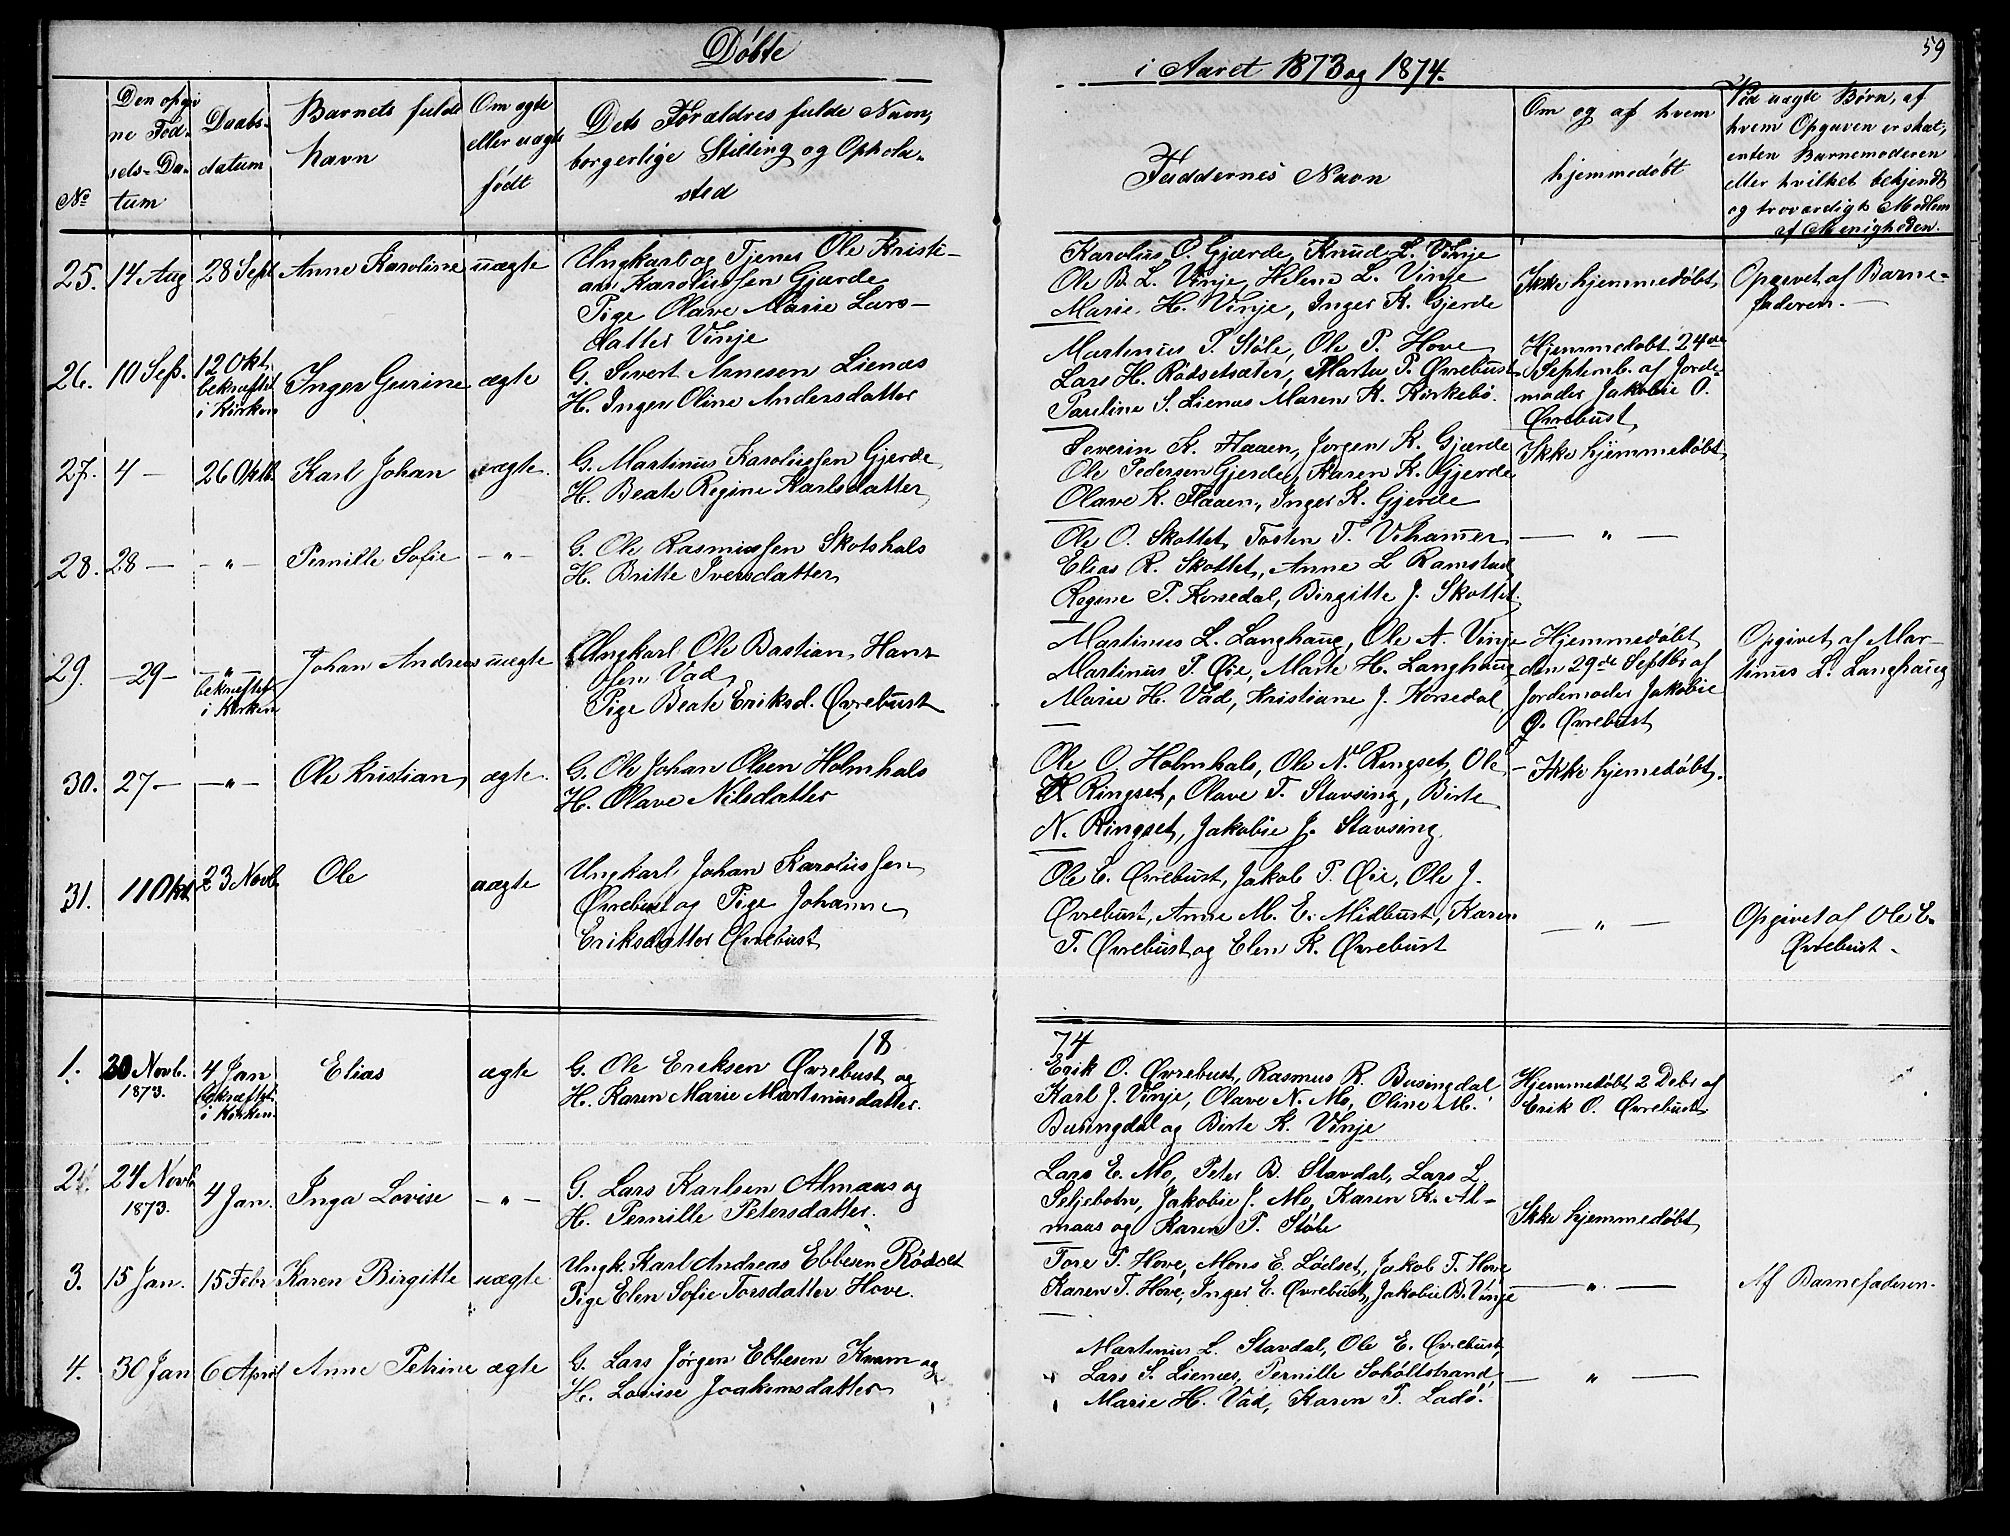 59
Døbte
i Aaret 1873 og 1874.
No
Den opgi
ne Fød-
sels-Da-
tum
Daabs-
datum
Barnets fulde
Navn
Om ægte
eller uægte
født
Dets Forældres fulde Navn,
borgerlige Stilling og Ophols-
sted
Faddernes Navn
Om og af hvem
hjemmedøbt
Ved uægte Børn, af
hvem Opgaven er skat,
enten Barnemoderen
eller hvilket bekjendt
og troværdigt Medlem
af Menigheden.
25. 14 Aug 28 Sept Anne Karoline uægte
Ungkarl og Tjener Ole Kristi-
an Karoliussen Gjærde
Pige Olave Marie Lars-
datter Vinje
Karolus O. Gjærde, Knud L. Vinje
Ole B. L. Vinje, Helene L. Vinje
Marie H. Vinje, Inger K. Gjerde
Ikke hjemmedøbt
Opgivet af Barne-
faderen.
26. 10 Sep. 12 Okt.
bekræftet
i Kirken
Inger Gurine ægte
G. Sivert Arnesen Lienæs
H. Inger Oline Andersdatter
Martinus P. Støle, Ole P. Hove
Lars H. Rødsetsæter, Marta P. Øvrebust
Pauline S. Lienæs Maren K. Kirkebø.
Hjemmedøbt 24de
Septemb. af Jorde-
moder Jakobie O.
Øvrebust
27. 4 — 26 Oktb. Karl Johan ægte.
G. Martinus Karoliussen Gjerde
H. Beate Regine Karlsdatter
Severin K. Flaaen, Jørgen K. Gjærde
Ole Pedersen Gjerde, Karen K. Gjerde
Olave K. Flaaen, Inger K. Gjerde
Ikke hjemmedøbt
28. 28 — - " - Pernille Sofie - " -
G. Ole Rasmussen Skotshals
H. Britte Iversdatter
Ole O. Skottet, Tosten T. Vehammer
Elias R. Skottet, Anne L Ramstad
Regine P. Korsedal, Birgitte J. Skottet.
— " —
29. -29- — " —
bekræftet
i Kirken
Johan Andreas uægte
Ungkarl Ole Bastian Han-
sen Vad
Pige Beate Eriksd. Øvrebust
Martinus L. Langhaug, Ole A. Vinje
Martinus P. Øie, Marte H. Langhaug
Marie H. Vad, Kristiane J. Korsedal
Hjemmedøbt
den 29de Septbr af
Jordemoder Jakobie
O. Øvrebust
Opgivet af Mar-
tinus L. Langhaug
30. 27 — — " — Ole Kristian ægte.
G. Ole Johan Olsen Holmhals
H. Olave Nilsdatter
Ole O. Holmhals, Ole N. Ringset, Ole
K Ringset, Olave T. Stavsing, Birte
N. Ringset, Jakobie J. Stavsing.
Ikke hjemedøbt.
31. 11 Okt 23 Novb. Ole uægte
Ungkarl Johan Karoliussen
Øvrebust og Pige Johanne
Eriksdatter Øvrebust
Ole E. Øvrebust, Jakob P. Øie, Ole J.
Øvrebust, Anne M. E. Midbust, Karen
T. Øvrebust og Elen K. Øvrebust
— " —
Opgivet af Ole E.
Øvrebust.
18 74
1. 30 Novb.
1873.
4 Jan
bekræftet
i Kirken
Elias ægte
G. Ole Eriksen Øvrebust og
H. Karen Marie Martinusdatter.
Erik O. Øvrebust, Rasmus R. Busingdal
Karl J. Vinje, Olave N. Mo, Oline M.
Busingdal og Birte K. Vinje
Hjemmedøbt 2 Debr af
Erik O. Øvrebust
2. 24 Novb
1873.
4 Jan. Inga Lovise - " -
G. Lars Karlsen Almaas og
H. Pernille Petersdatter.
Lars E. Mo, Peter B. Stavdal, Lars L
Seljebotn, Jakobie J. Mo, Karen K. Al-
maas og Karen P. Støle
Ikke hjemmedøbt
3. 15 Jan. 15 Febr Karen Birgitte uægte
Ungk. Karl Andreas Ebbesen Rødset
Pige Elen Sofie Torsdatter Hove.
Tore P. Hove, Mons E. Lødset, Jakob T. Hove
Karen T. Hove, Inger E. Øvrebust, Jakobie B. Vinje
— " —
Af Barnefaderen.
4. 30 Jan 6 April Anne Petrine ægte
G. Lars Jørgen Ebbesen Kvam og
H. Lovise Joakimsdatter
Martinus L. Stavdal, Ole E. Øvrebust,
Lars S. Lienæs, Pernille Soholtstrand,
Marie H. Vad, Karen P. Ladø.
— " —